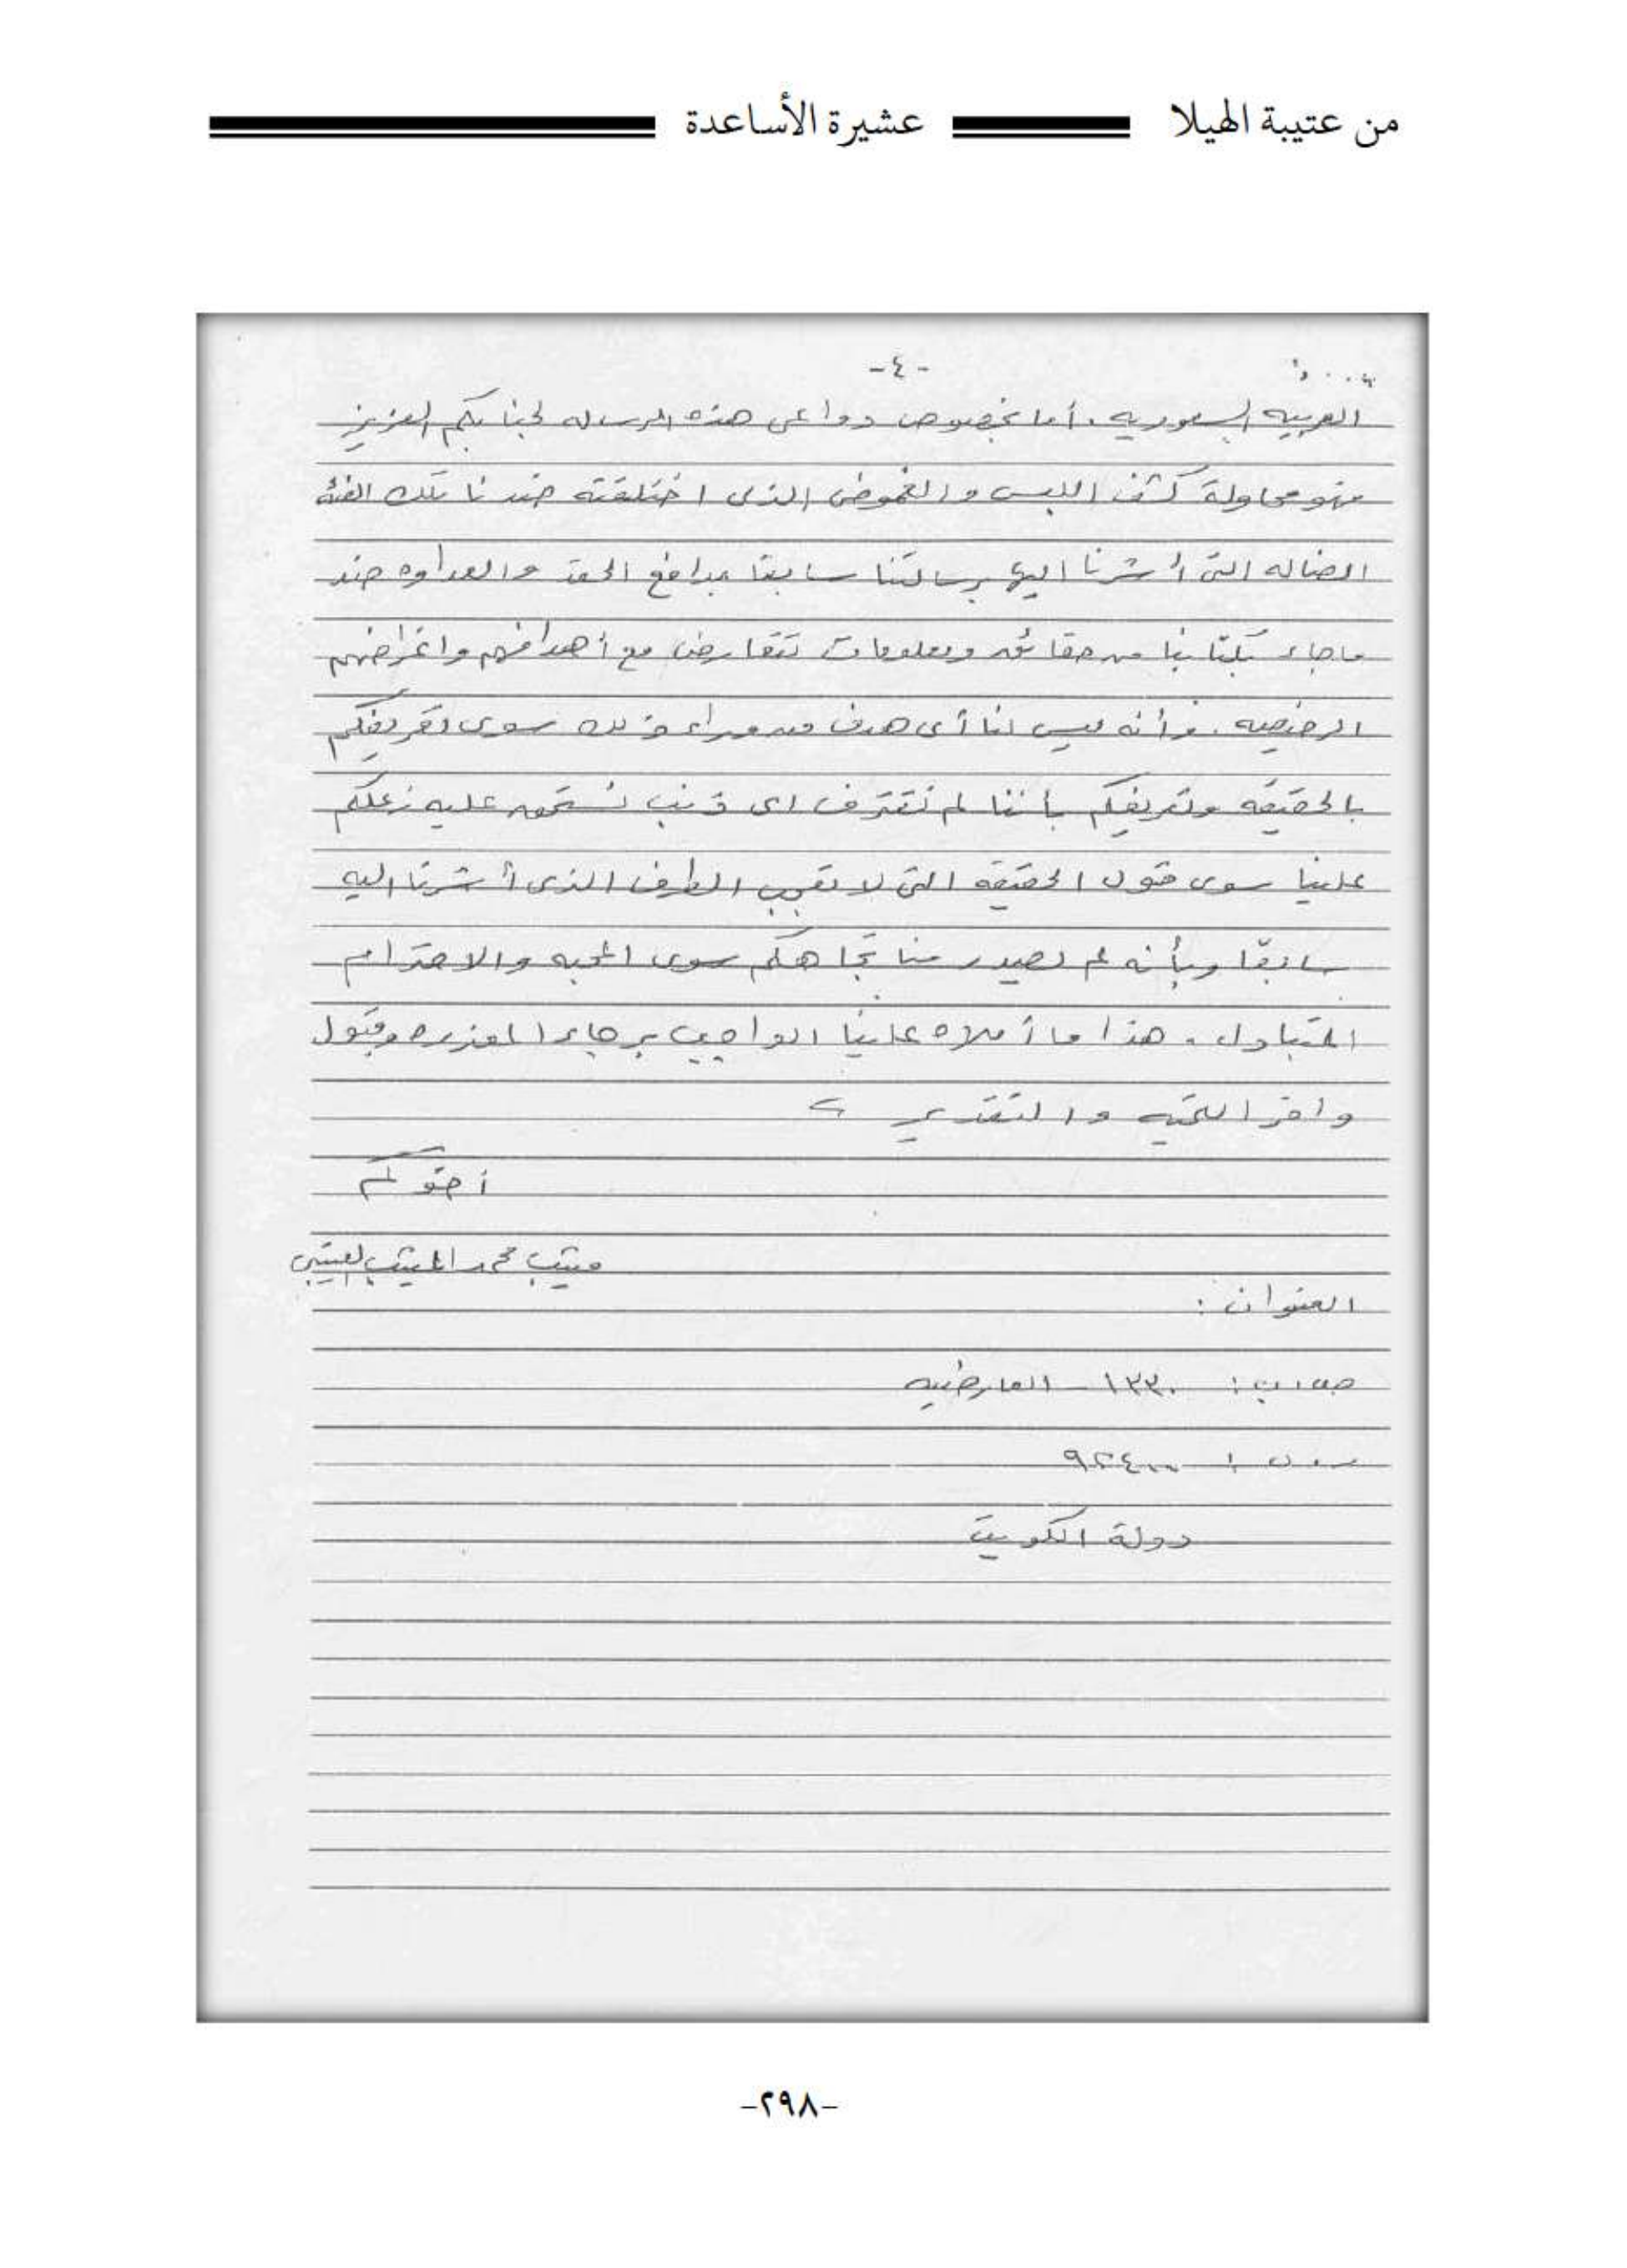 من عتيبة الهيلا عشيرة الأساعدة
-٤-
العربيه السعوديه . أما بخصوص دواعي هذه الرساله لجنابكم العزيز
فهو محاولة كشف اللبس والغموض الذى اختلقته ضدنا تلك الفئه
الضاله التى أشرنا اليها برسالتنا سابقا بدافع الحقد والعداوه ضد
ماجاء بكتابنا من حقائق ومعلومات تتعارض مع أهدافهم واغراضهم
الرخيصه . وأنه ليس لنا أى هدف من وراء ذلك سوى تعريفكم
بالحقيقه وتعريفكم بأننا لم نقترف اى ذنب نستحق عليه زعلكم
علينا سوى قول الحقيقه التى لا تعجب الطرف الذى أشرنا اليه
سابقا وبأنه لم يصدر منا تجاهكم سوى المحبه والاحترام
المتبادل . هذا ما أملاه علينا الواجب برجاء المعذره وقبول
وافر التحيه والتقدير
أخوكم
متعب محمد العتيبي
العنوان :
ص.ب : ١٣٣٠ - العارضيه
٩٢٤٠٠
دولة الكويت
-٢٩٨-